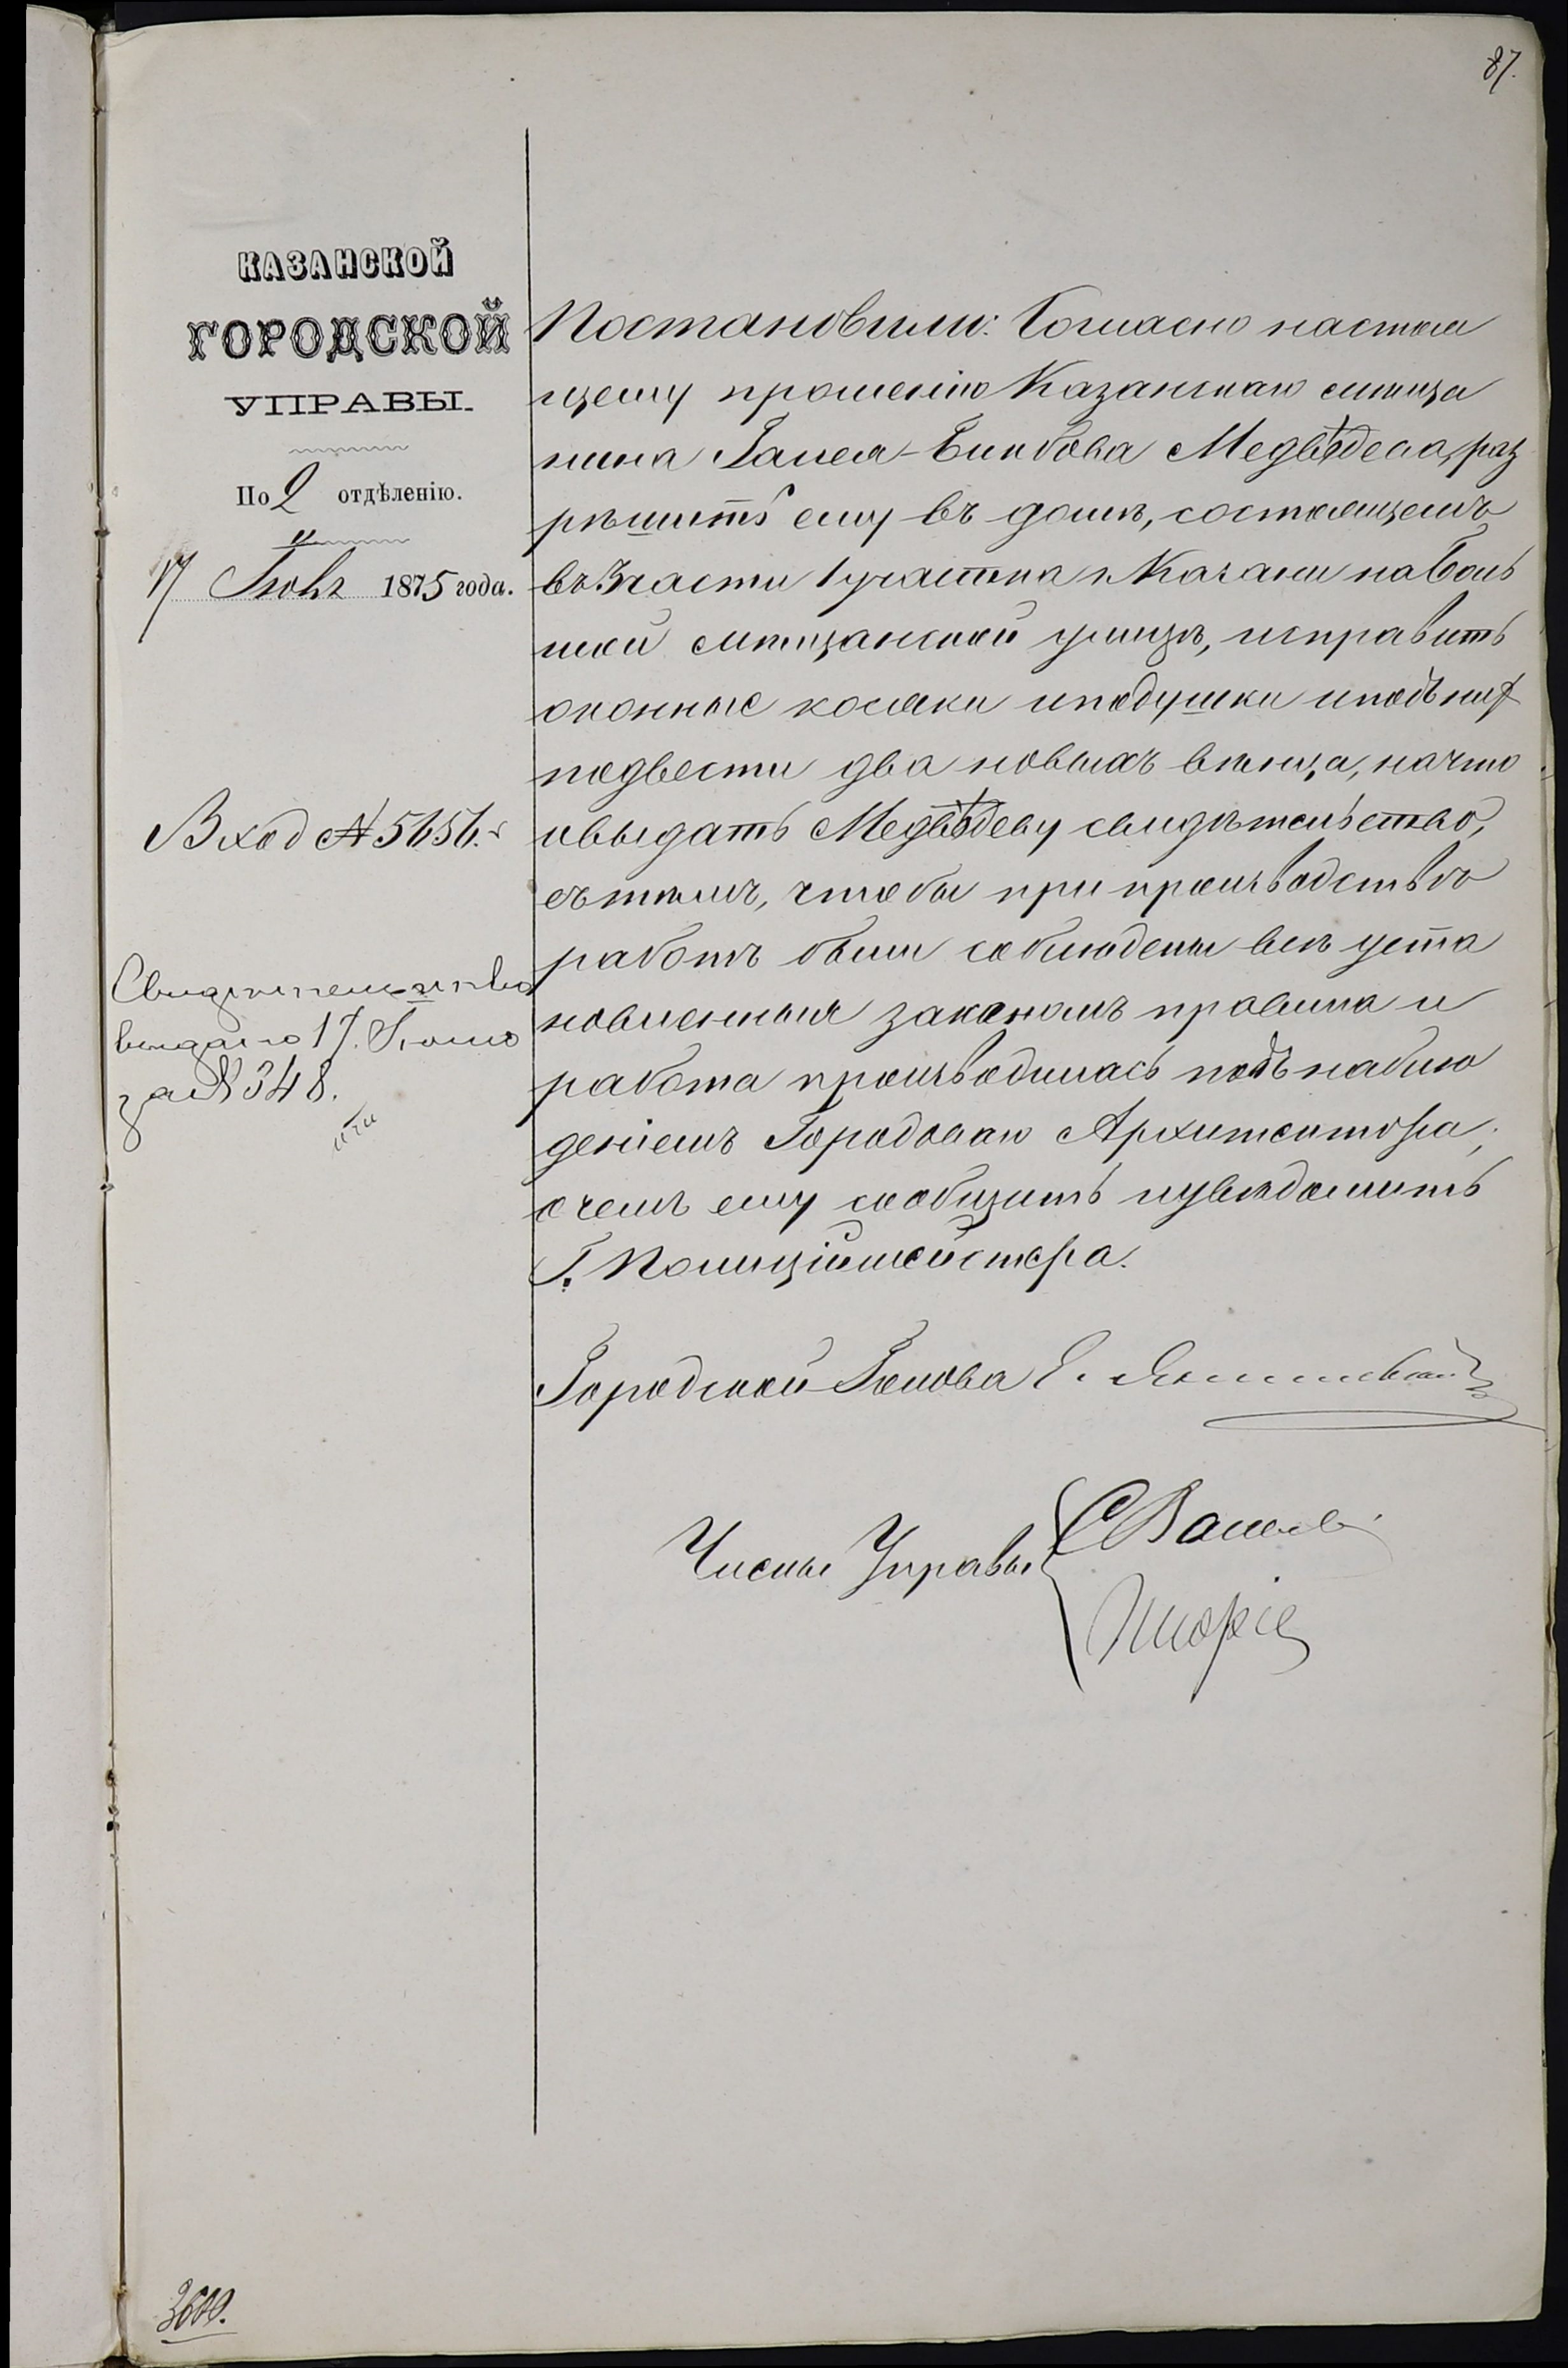 87.
КАЗАНСКОЙ
ГОРОДСКОЙ
УПРАВЫ.
По 2 отдѣленію.
17 Іюня 1875 года.
Вход № 5656.
Свидѣтельство
выдано 17. Іюня
за № 348.
Постановили: Согласно настоя
щему прошенію Казанскаго мѣща
нина Медвѣдева, раз
рѣшить ему въ домѣ, состоящемъ
въ 3 части 1 участка г. Казани на Боль
шой мѣщанской улицѣ, исправить
оконные косяки и подушки и подъ низ
подвести два новыхъ вѣнца, на что
и выдать Медвѣдеву свидѣтельство,
съ тѣмъ, чтобы при производствѣ
работъ были соблюдены всѣ уста
новленныя закономъ правила и
работа производилась подъ наблю
деніемъ Городоваго Архитектора;
о чемъ ему сообщить и увѣдомить
Г. Полиціймейстера.
Городской Голова Е.
Члены Управы
3600.